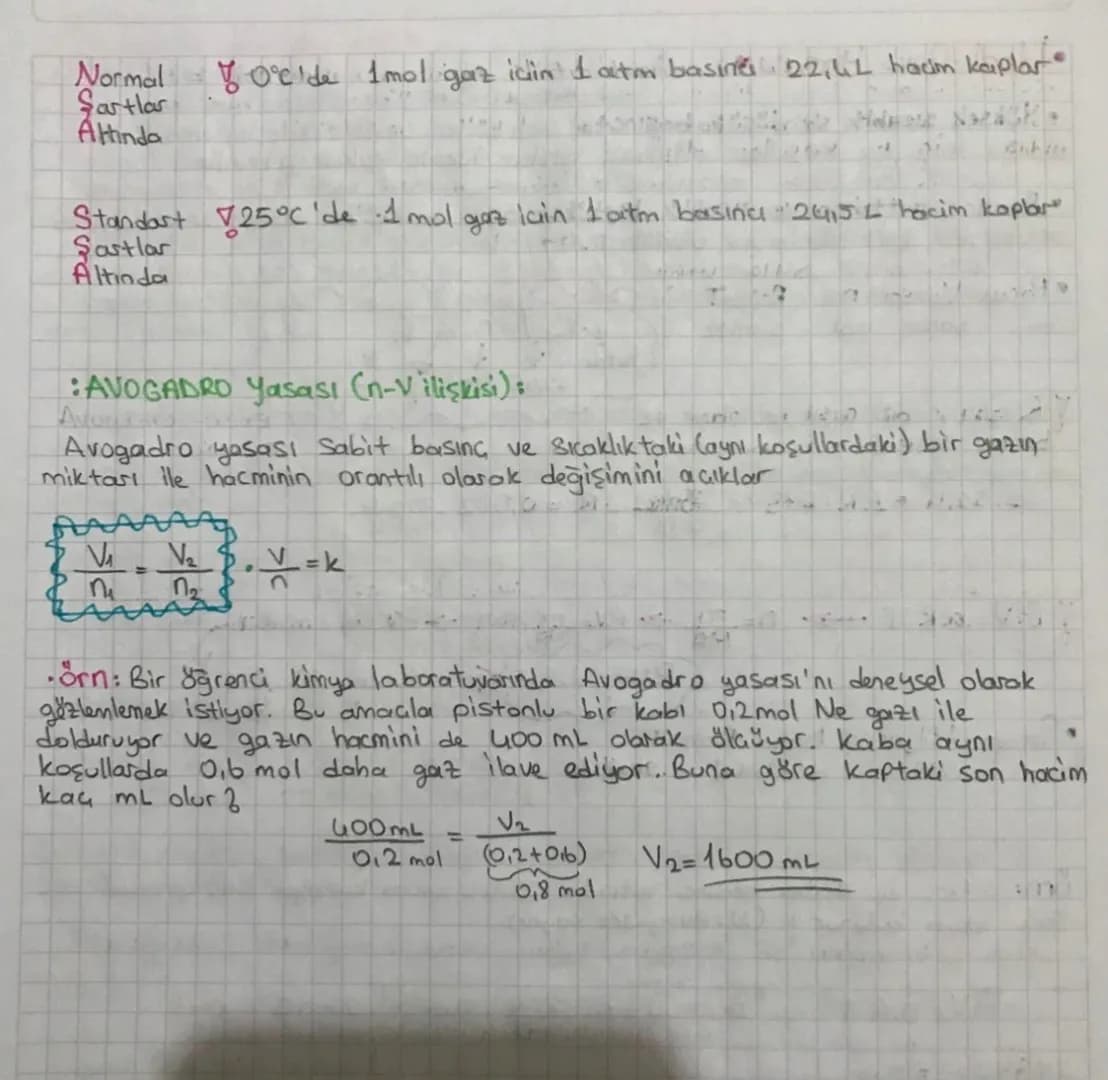 Normal 0°C'de 1mol gaz için 1 atm basıncı 22,4L hacim kaplar
Şartlar
Altında
Standart 25°C'de 1 mol gaz için 1 atm basıncı 24,5 L hacim kaplar
Şartlar
Altında
:AVOGADRO Yasası (n-V ilişkisi):
Avogadro yasası Sabit basınç ve sıcaklıktaki (aynı koşullardaki) bir gazın
miktarı ile hacminin orantılı olarak değişimini açıklar
V1/n1 = V2/n2 . V/n = k
.Örn: Bir öğrenci kimya laboratuvarında Avogadro yasası'nı deneysel olarak
gözlemlemek istiyor. Bu amaçla pistonlu bir kabı 0,2mol Ne gazı ile
dolduruyor ve gazın hacmini de 400 mL olarak ölçüyor. Kaba aynı
koşullarda 0,6 mol daha gaz ilave ediyor. Buna göre kaptaki son hacim
kaç mL olur?
400mL/0,2 mol = V2/(0,2+0,6) V2=1600 mL
0,8 mol